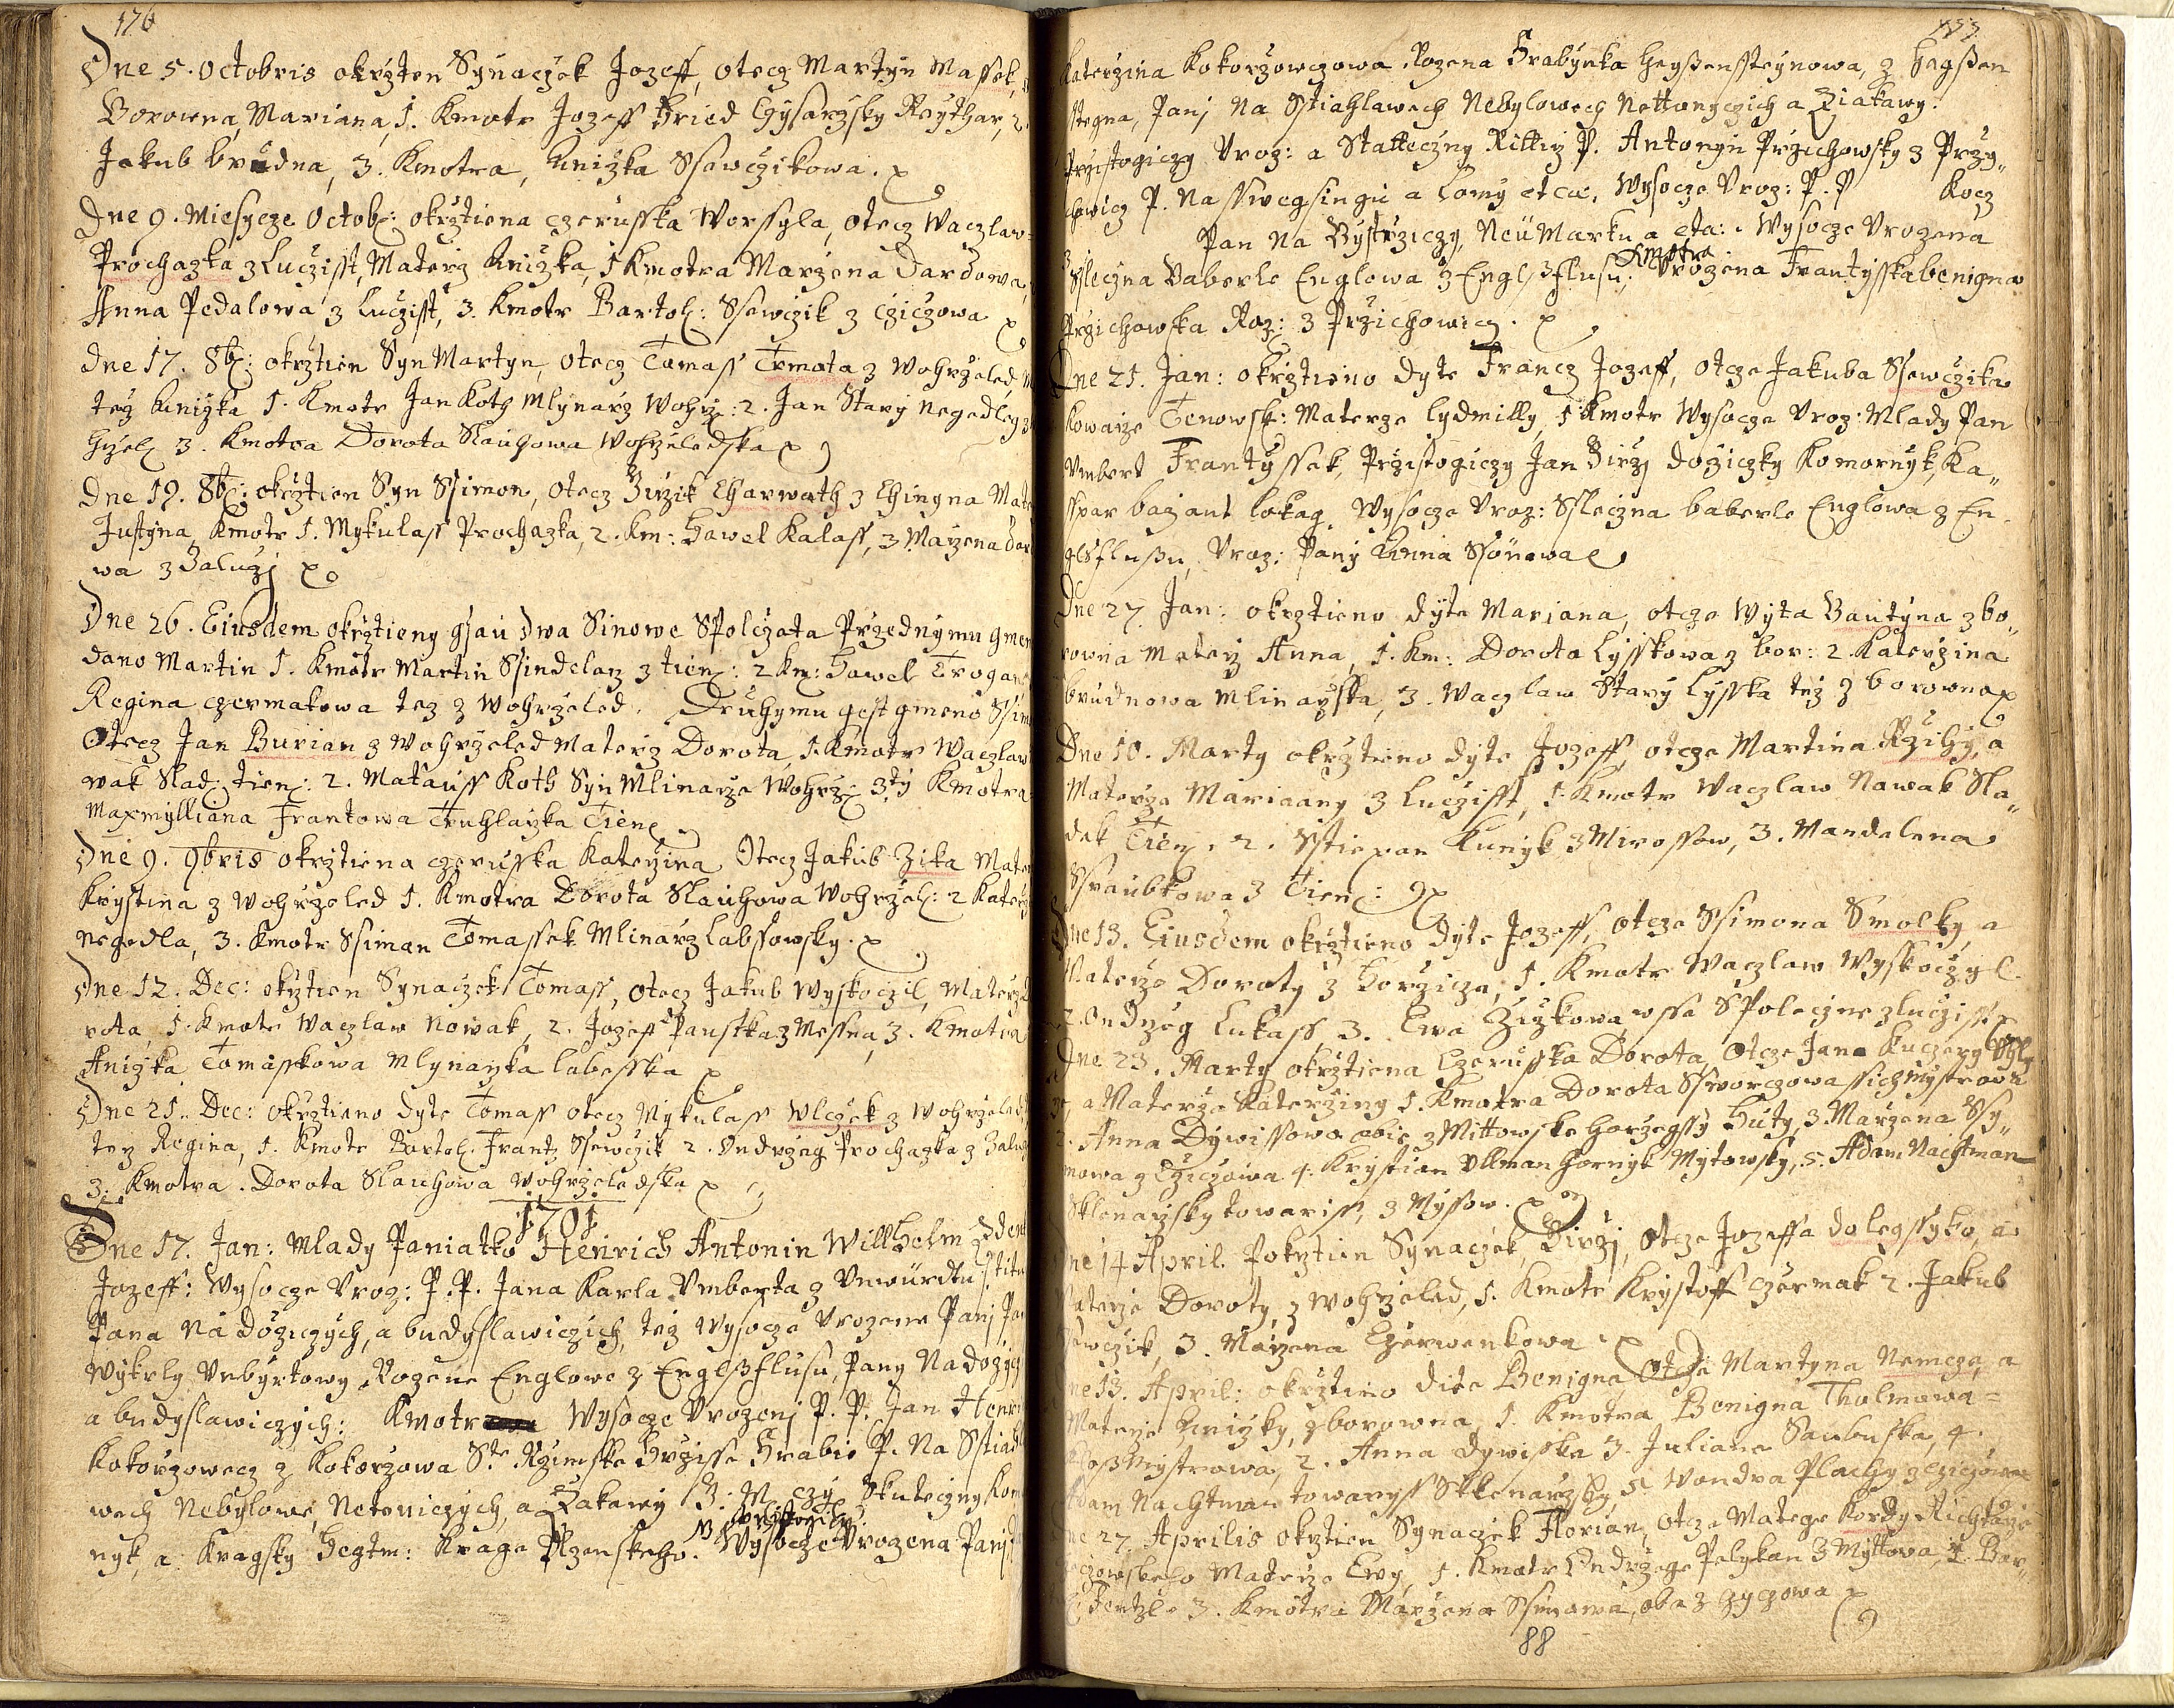 176
Dne 5. Octobris okrzten Synaczek Jozeff, otecz Martyn Massek,
Borowna, Mariana, 1. Kmotr Jozeff Fried Cysarzsky Reythar, 2.
Jakub brudna, 3. Kmotra, Anižka Ssewczikowa.
Dne 9. Miesycze Octob: okrztiena czerusska Worssyla, otecz Waczlaw
Prochazka z Luczisst, Materz Anižka, 1 Kmotra Marzena Dardowa,
Anna Pedalowa z Luczisst, 3. Kmotr Bartol: Ssewczik z Cziczowa
Dne 17. 8b: okrztien Syn Martyn, otecz Tomass Trmota z Wohrzeled,
tez Anižka 1. Kmotr Jan Koth Mlynarz Wohrz: 2. Jan Stary Negedley z
hrzel 3. Kmotra Dorota Slauhowa Wohrzeledska
Dne 19. 8b: okrztien Syn Ssimon, otecz Girzik Charwath z Chinyna Mate
Justyna, Kmotr 1. Mykulass Prochazka, 2. Km: Hawel Kalass, 3 Marzena Dar
wa z Zaluzj
Dne 26. Eiusdem okrztieny gsau dwa Sinowe Spolczata Przednymu gmen
dano Martin 1. Kmotr Martin Ssindelarz z tien: 2 km: Hawel Trogan
Regina czermakowa tez z Wohrzeled. Druhymu gest gmeno Ssim
Otecz Jan Burian z Wohrzeled Materz Dorota, 1. Kmotr Waczlaw
wak Slad: tien: 2. Matauss Koth Syn Mlinarze Wohrz: 3ty Kmotra
Maxmylliana Frantowa Truhlarzka Tien
Dne 9. 9bris okrztiena czerusska Katerzina Otecz Jakub Zika Mater
Krystina z Wohrzeled 1. Kmotra Dorota Slauhowa Wohrzel: 2 Katerz
Negedla, 3. Kmotr Ssiman Tomassek Mlinarz Labssowsky.
Dne 12. Dec: okrztien Synaczek Tomass, otecz Jakub Wyskoczil, Materz
rota, 1. Kmotr Waczlaw Nowak, 2. Jozeff Paustka z Messna, 3. Kmotra
Anižka Tomasskowa Mlynarzka labesska
Dne 21. Dec: okrztieno dyte Tomass otecz Mykulass Wlczek z Wohrzeled,
tez Regina, 1. Kmotr Bartol. Frantz Ssewczik 2. Ondrzeg Prochazka z Zalu
3. Kmotra. Dorota Slauhowa Wohrzeledska
1701
Dne 17. Jan: Mlady Paniatko Henrich Antonin Willhelm Zden
Jozeff: Wysocze Vroz: P. P. Jana Karla Vmberta z Vnwürdtu stitu
Pana na dožiczych, a budyslawiczich, tez Wysocze Vrozene Panj Pa
Wyktly Vnbyrtowy Rozene Englowe z Englßflusu, Pany Na dožiczy
a budyslawiczych: Kmotr Wysocze Vrozenj P. P. Jan Henri
Kokorzowecz z Kokorzowa Ste Rzimske Hržisse Hrabie P. Na Sstiahl
wech Nebylowe, Netoniczych, a Zakawy J: M: czy Skuteczny Kom
nyk, a Kragsky Hegtm: Krage Plzenskeho. Wysocze Vrozena Panj

Katerzina Kokorzowczowa Rozena Hrabynka Heyßenssteynowa, z Hegßen
stegna, Panj Na Sstiahlawech Nebylowech Nettonyczich a Ziakawy.
Przistogiczy Vroz: a Statteczny Rittirz P. Antonyn Przichowsky z Przy„
chowicz P. Na sswegsingu a Lomy etca. Wysocze Vroz: P. P Kocz
Pan Na Bystrziczy, NeuMarku a eta: Wysocze Vrozena
Kmotra
Slleczna Baberle Englowa z Englßflusu, Vrozena Frantysska benigna
Przichowska Roz: z Przichowicz.
Dne 21. Jan: okrztieno dyte Francz Jozeff, otcze Jakuba Ssewczika
Kowarze Tenowsk: Materze lydmilly, 1 Kmotr Wysocze Vroz: Mlady Pan
Vmbert Frantyssek, Przistogiczy Jan Girzj dožiczky Komornyk, Ka„
sspar bazant lokag. Wysocze Vroz: Ssleczna baberle Englowa z En„
glsflußu, Vroz: Pany Anna Ssönowa
Dne 27. Jan: okrztieno dyte Mariana, otcze Wyta Bautyna z bo„
rowna Materz Anna, 1. Km: Dorota Lysskowa z bor: 2. Katerzina
brudnowa Mlinarzka, 3. Waczlaw Stary Lysska tez z borowna
Dne 10. Marty okrztieno dyte Jozeff, otcze Martina Rzihy, a
Materze Mariaany z Luczisst, 1. Kmotr Waczlaw Nawak Sla„
dek Tien. 2. Sstiepan Kunyk z Mirossow, 3. Mandalena
Ssraubkowa z Tien:
Dne 13. Eiusdem okrztieno dyte Jozeff, otcze Ssimona Smolky, a
Materze Doroty z Horzicze, 1. Kmotr Waczlaw Wyskoczyl.
2. Ondrzeg Lukass, 3. Ewa Zizkowa, wsse Spoleczne z luczisst
Dne 23. Marty okrztiena Czerusska Dorota, Otcze Jana Kuczery
a Materze Katerziny 1. Kmotra Dorota Ssworczowa ssichmystrowa
2. Anna Dywissowa obie z Mittowske horzegssy Huty, 3. Marzena Ssy„
mowa z Cziczowa 4. Krystian Ullman hornyk Mytowsky, 5. Adam Nachtman
Sklenarzsky towariss, z Myssow.
Dne 14 April. Pokrztien Synaczek, Girzj, Otcze Jozeffa dolegssyho, a
Materze Doroty, z Wohrzeled, 1. Kmotr Krystoff Czermak 2. Jakub
Sewczik, 3. Marzena Czerwenkowa.
Dne 13. April: okrztino dite Benigna Otcze Martyna Nemcze, a
Materze Anižky, z borowna, 1. Kmotra Benigna Tholmowa
Mystrowa, 2. Anna Dywisska 3. Juliana Saubuska, 4.
Adam Nachtman towaryss Sklenarzsky, 5 Wondra Plachy z cziczowa
Dne 27. Aprilis okrztien Synaczek Florian, otcze Matege Kordy Richtarze
czowskeho Materze Ewy, 1. Kmotr Ondrzege Polykan z Myttowa, 2. Bar„
Frntzl 3. Kmotra Marzena Ssimowa, obe z czyczowa
88